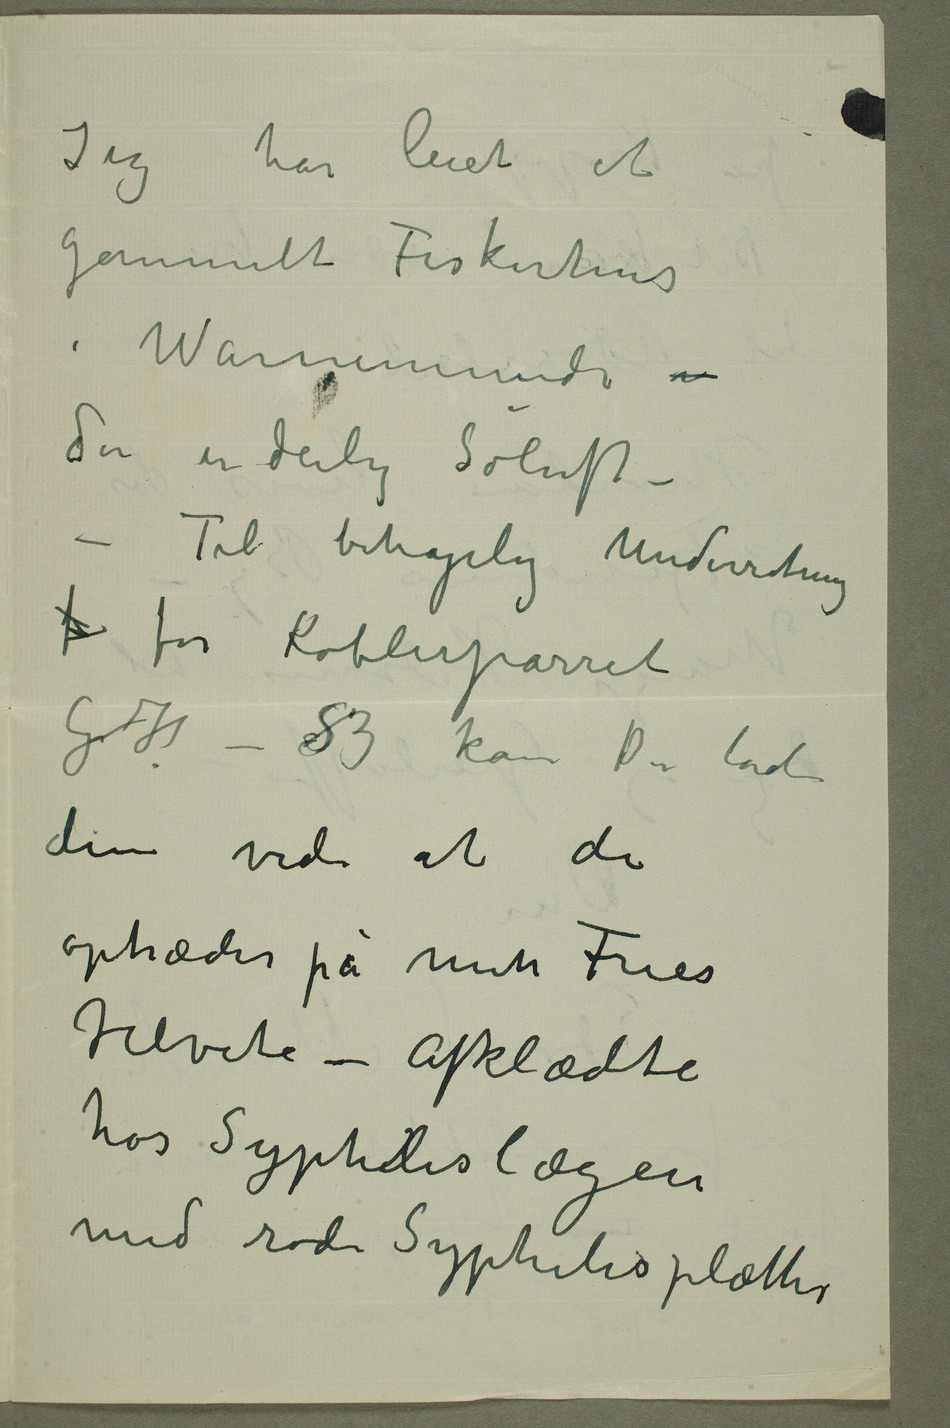 Jeg har leiet et
gammelt Fiskerhus
i Warnemünde –
der er deilig Søluft –
– Til behagelig Underretning
for Koblerparret
G. H. – S3 kan Du lade
dem vide at de
optræder på mit Fries
Helvete – Afklædte
hos Syphilislægen
med røde Syphilisplætter